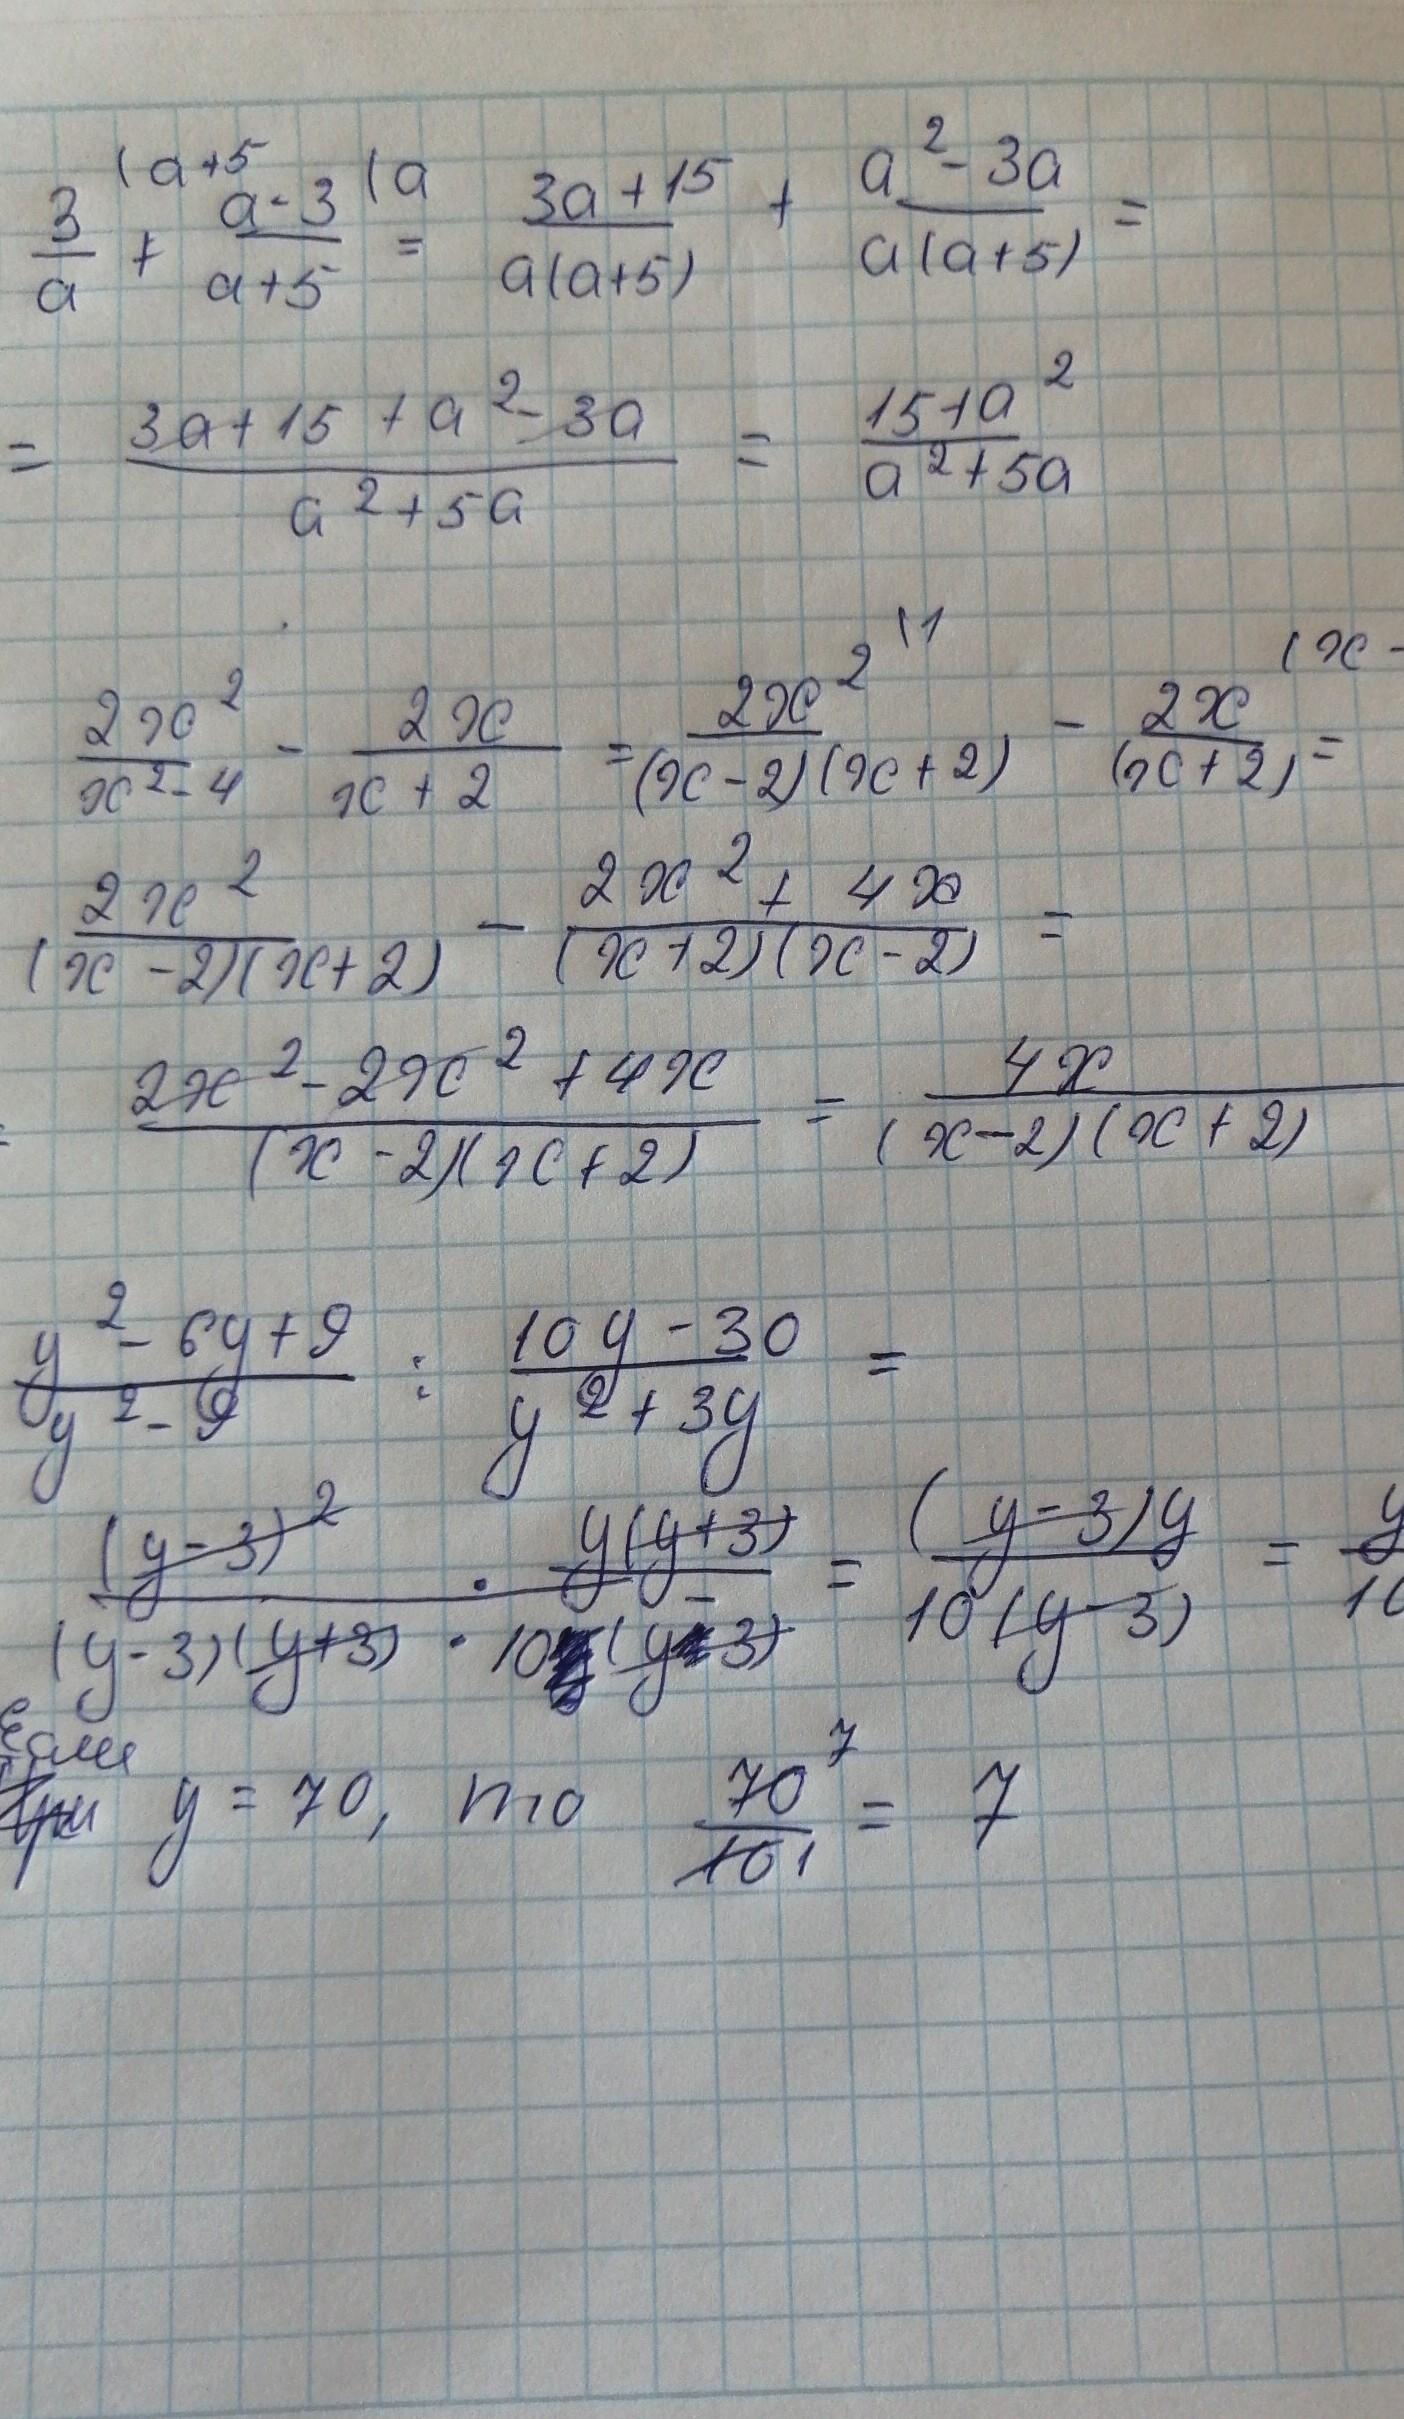 3/a (a+5 + a-3/a+5 (a = 3a+15/a(a+5) + a²-3a/a(a+5) =
= 3a+15+a²-3a/a²+5a = 15+a²/a²+5a
2x²/x²-4 - 2x/x+2 = 2x²/(x-2)(x+2) (1 - 2x/(x+2) (x- =
2x²/(x-2)(x+2) - 2x²+4x/(x+2)(x-2) =
= 2x²-2x²+4x/(x-2)(x+2) = 4x/(x-2)(x+2)
y²-6y+9/y²-9 : 10y-30/y²+3y =
(y-3)² · y(y+3)/(y-3)(y+3) · 10(y-3) = (y-3)y/10(y-3) = y/10
Если
При y = 70, то 70 7/10 1 = 7